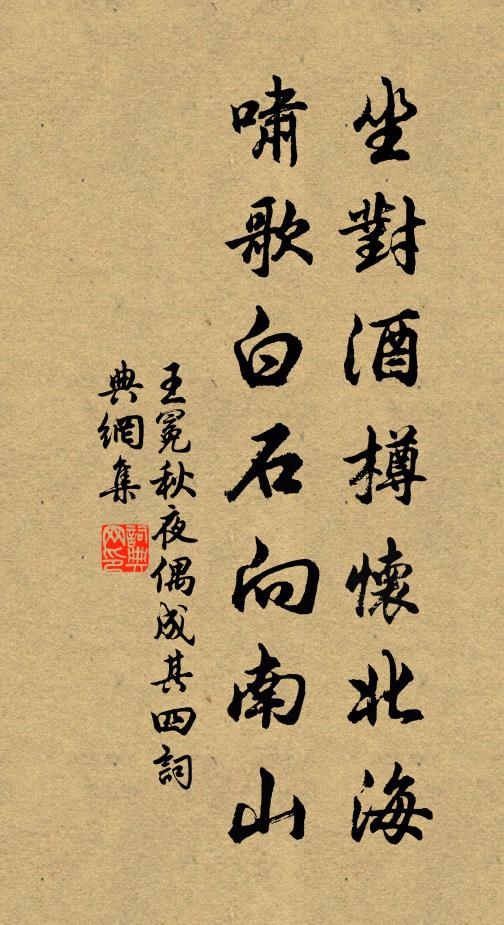 坐對酒樽懷北海
嘯歌白石向南山
王冕秋夜偶成其四詞
典網集
詞典網印